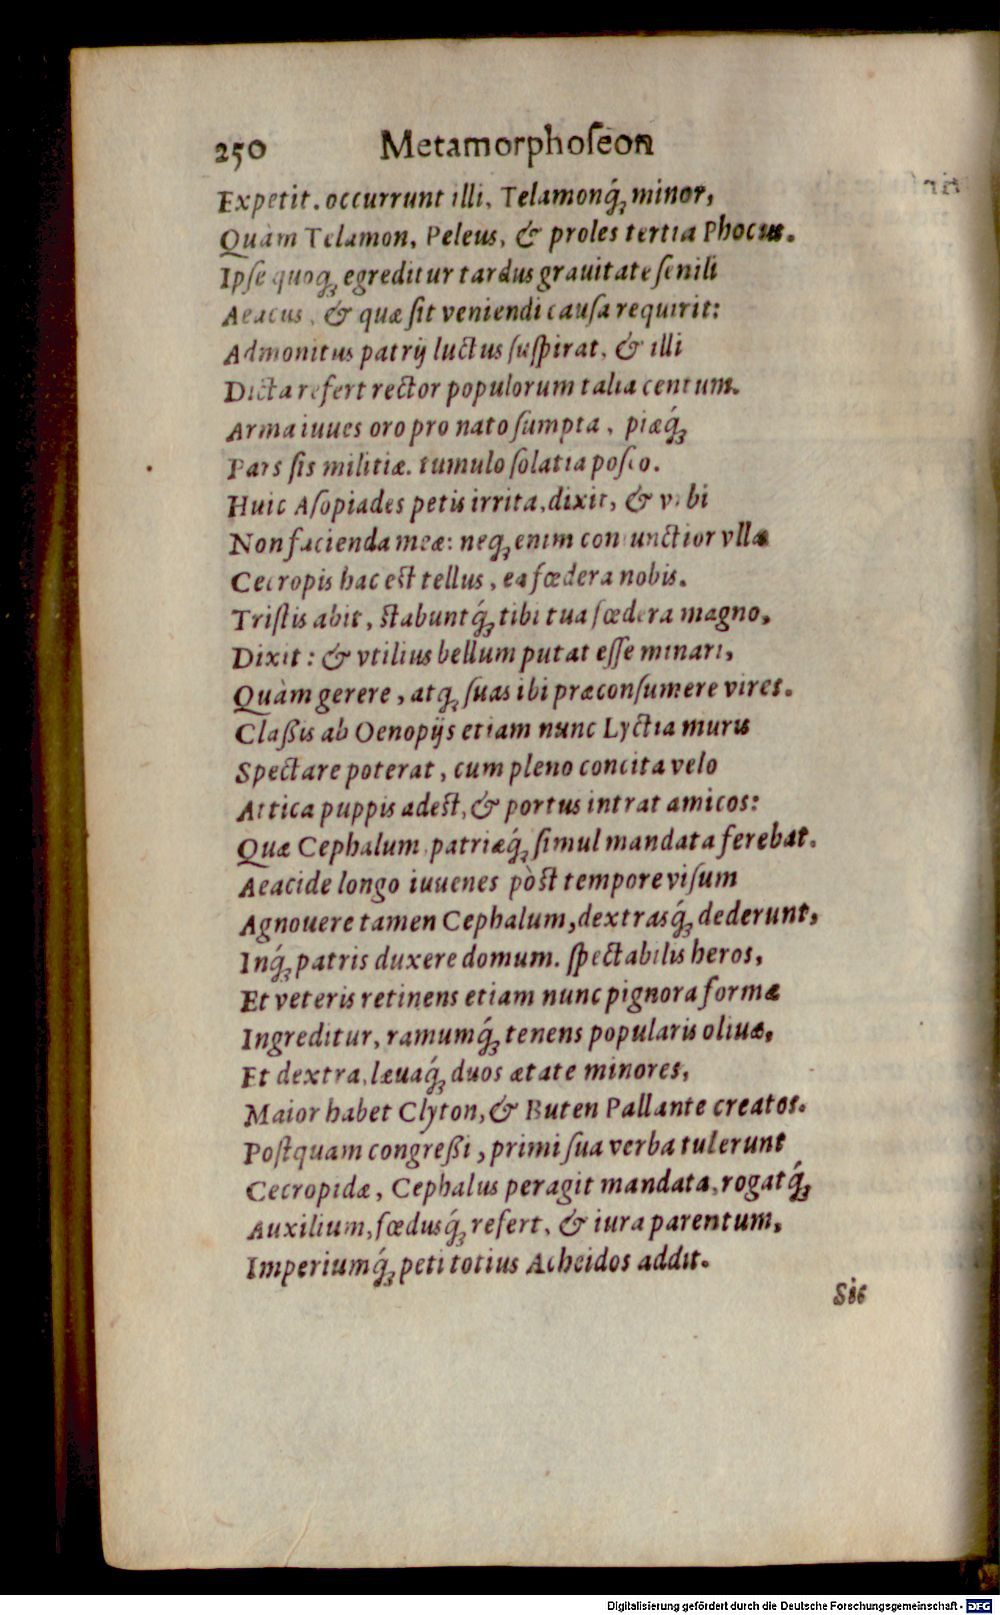 250 Metamorphoſeon
Expetit. occurrunt illi, Telamonq́ꝫ minor,
Quàm Telamon, Peleus, & proles tertia Phocus.
Ipſe quoqꝫ egreditur tardus grauitate ſenili
Aeacus, & quæ ſit veniendi cauſa requirit:
Admonitus patrij luctus ſuſpirat, & illi
Dicta refert rector populorum talia centum.
Arma iuues oro pro nato ſumpta, piæq́ꝫ
Pars ſis militiæ. tumulo ſolatia poſco.
Huic Aſopiades petis irrita, dixit, & vrbi
Non facienda meæ: neqꝫ enim coniunctior vlla
Cecropis hac eſt tellus, ea fœdera nobis.
Triſtis abit, ſtabuntq́ꝫ tibi tua fœdera magno,
Dixit: & vtilius bellum putat eſſe minari,
Quàm gerere, atqꝫ ſuas ibi præconſumere vires.
Claßis ab Oenopijs etiam nunc Lyctia muris
Spectare poterat, cum pleno concita velo
Attica puppis adeſt, & portus intrat amicos:
Quæ Cephalum, patriæq́ꝫ ſimul mandata ferebat.
Aeacide longo iuuenes pòſt tempore viſum
Agnouere tamen Cephalum, dextrasq́ꝫ dederunt,
Inq́ꝫ patris duxere domum. ſpectabilis heros,
Et veteris retinens etiam nunc pignora formæ
Ingreditur, ramumq́ꝫ tenens popularis oliuæ,
Et dextra, læuaq́ꝫ duos ætate minores,
Maior habet Clyton, & Buten Pallante creatos.
Poſtquam congreßi, primi ſua verba tulerunt
Cecropidæ, Cephalus peragit mandata, rogatq́ꝫ
Auxilium, fœdusq́ꝫ refert, & iura parentum,
Imperiumq́ꝫ peti totius Acheidos addit.
Sic
Digitalisierung gefördert durch die Deutsche Forschungsgemeinschaft - DFG